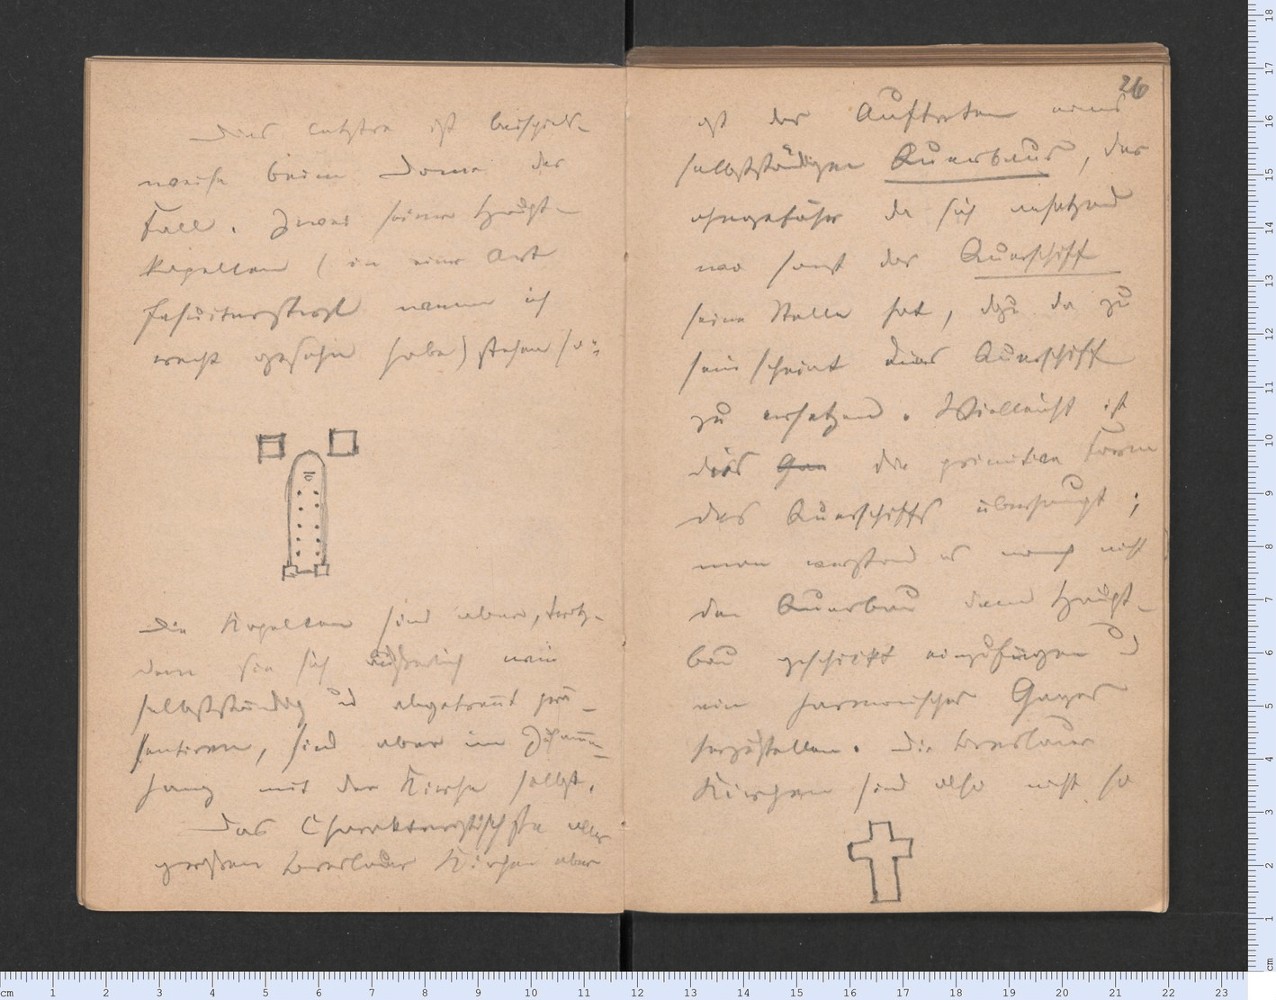 Dies letztre ist beispiels-
weise beim Dome der
Fall. Zwei seiner Haupt-
kapellen (in einer Art
Jesuiterstyl wenn ich
recht gesehn habe) stehen so:
Die Kapellen sind aber, trotz-
dem sie sich äußerlich wie
selbstständig u abgetrennt prä-
sentiren, sind aber im Zusamm-
hang mit der Kirche selbst.
Das Charakteristischste aller
großen Breslauer Kirchen aber
26
ist das Auftreten eines
selbstständigen Querbaus, der
ohngefähr da sich ansetzend
wo sonst das Querschiff
seine Stelle hat, dazu da zu
sein scheint dies Querschiff
zu ersetzen. Vielleicht ist
dies die primitive Form
des Querschiffs überhaupt;
man verstand es noch nicht
den Querbau dem Haupt-
bau geschickt einzufügen u
ein harmonisches Ganzes
herzustellen. Die Breslauer
Kirchen sind also nicht so